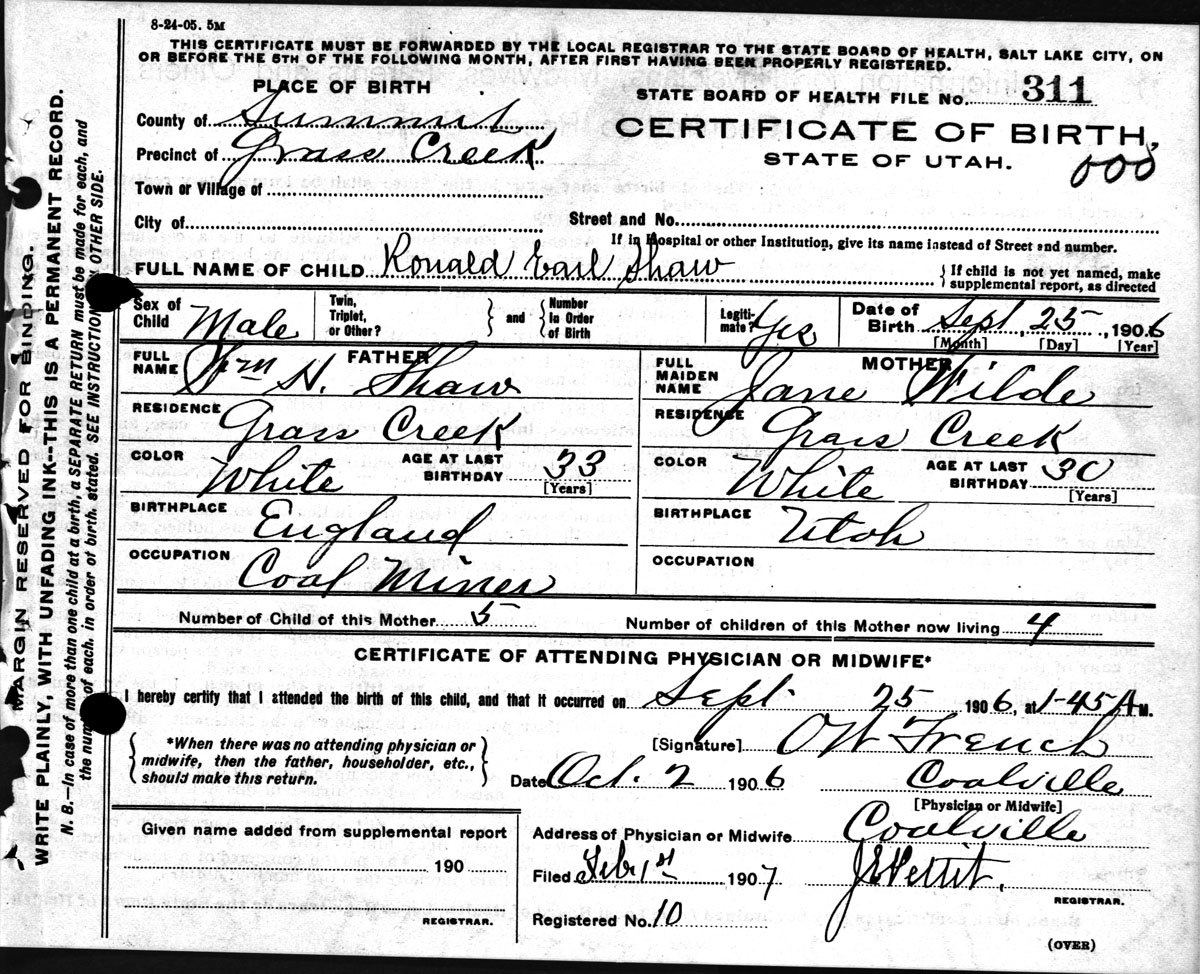 8-24-05. 5M
THIS CERTIFICATE MUST BE FORWARDED BY THE LOCAL REGISTRAR TO THE STATE BOARD OF HEALTH, SALT LAKE CITY, ON
OR BEFORE THE 5TH OF THE FOLLOWING MONTH, AFTER FIRST HAVING BEEN PROPERLY REGISTERED.
PLACE OF BIRTH
STATE BOARD OF HEALTH FILE No. 311
County of Summit
CERTIFICATE OF BIRTH,
Precinct of Grass Creek
STATE OF UTAH.
000
Town or Village of
City of
Street and No.
If in Hospital or other Institution, give its name instead of Street and number.
FULL NAME OF CHILD Ronald Earl Shaw
If child is not yet named, make
supplemental report, as directed
Sex of Child Male
Twin, Triplet, or Other?
and
Number In Order of Birth
Legiti-mate? Yes
Date of Birth Sept 25, 1906
[Month] [Day] [Year]
FATHER
FULL NAME Wm H. Shaw
RESIDENCE Grass Creek
COLOR White
AGE AT LAST BIRTHDAY 33
[Years]
BIRTHPLACE England
OCCUPATION Coal Miner
MOTHER
FULL MAIDEN NAME Jane Wilde
RESIDENCE Grass Creek
COLOR White
AGE AT LAST BIRTHDAY 30
[Years]
BIRTHPLACE Utah
OCCUPATION
Number of Child of this Mother 5
Number of children of this Mother now living 4
CERTIFICATE OF ATTENDING PHYSICIAN OR MIDWIFE*
I hereby certify that I attended the birth of this child, and that it occurred on Sept. 25 1906, at 1-45 A M.
*When there was no attending physician or
midwife, then the father, householder, etc.,
should make this return.
[Signature] O W French
Date Oct. 2 1906 Coalville
[Physician or Midwife]
Given name added from supplemental report
190
REGISTRAR.
Address of Physician or Midwife Coalville
Filed Feb 1st 1907 J E Pettit,
REGISTRAR.
Registered No. 10
(OVER)
MARGIN RESERVED FOR BINDING.
WRITE PLAINLY, WITH UNFADING INK--THIS IS A PERMANENT RECORD.
N. B.--In case of more than one child at a birth, a SEPARATE RETURN must be made for each, and
the number of each, in order of birth, stated. SEE INSTRUCTIONS ON OTHER SIDE.